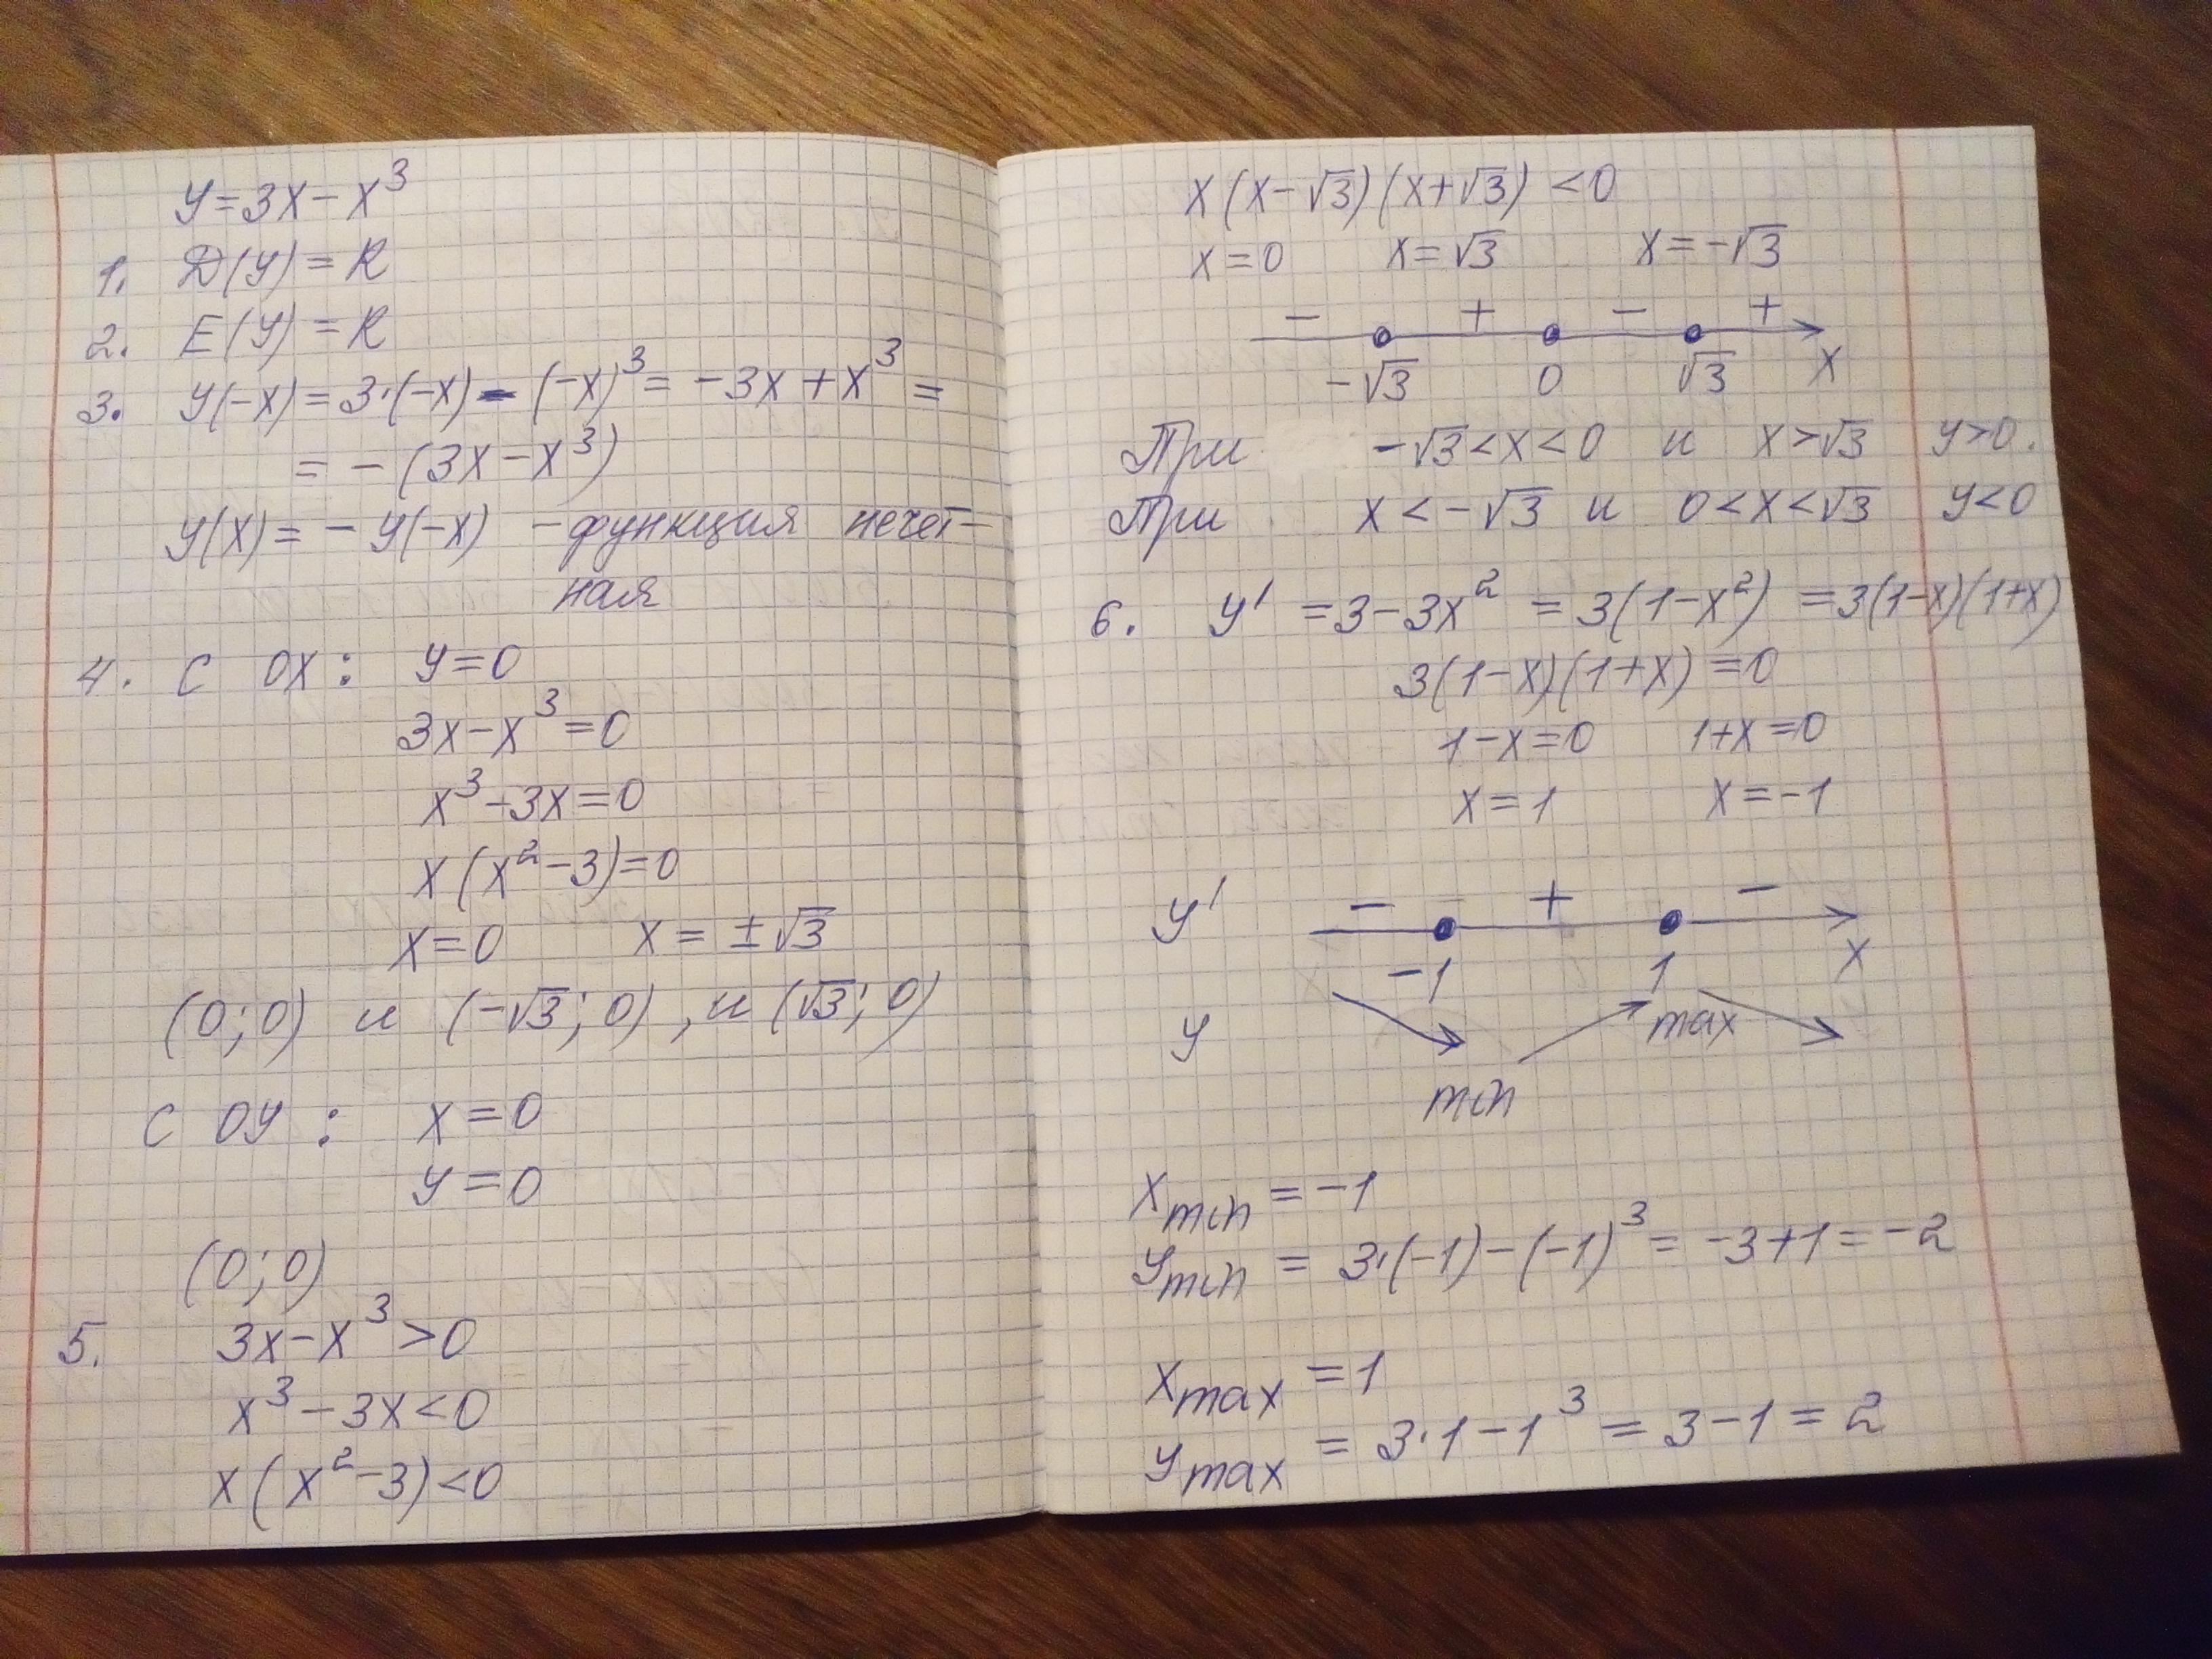 y=3x-x³
1. D(y)=R
2. E(y)=R
3. y(-x)=3·(-x)-(-x)³=-3x+x³=
=-(3x-x³)
y(x)=-y(-x) - функция нечет-
ная
4. С OX: y=0
3x-x³=0
x³-3x=0
x(x²-3)=0
x=0 x=±√3
(0;0) и (-√3;0), и (√3;0)
С OY: x=0
y=0
(0;0)
5. 3x-x³>0
x³-3x<0
x(x²-3)<0
x(x-√3)(x+√3)<0
x=0 x=√3 x=-√3
- + - +
-√3 0 √3 x
При -√3<x<0 и x>√3 y>0.
При x<-√3 и 0<x<√3 y<0
6. y'=3-3x²=3(1-x²)=3(1-x)(1+x)
3(1-x)(1+x)=0
1-x=0 1+x=0
x=1 x=-1
y' - + -
-1 1 x
y max
min
xmin=-1
ymin=3·(-1)-(-1)³=-3+1=-2
xmax=1
ymax=3·1-1³=3-1=2